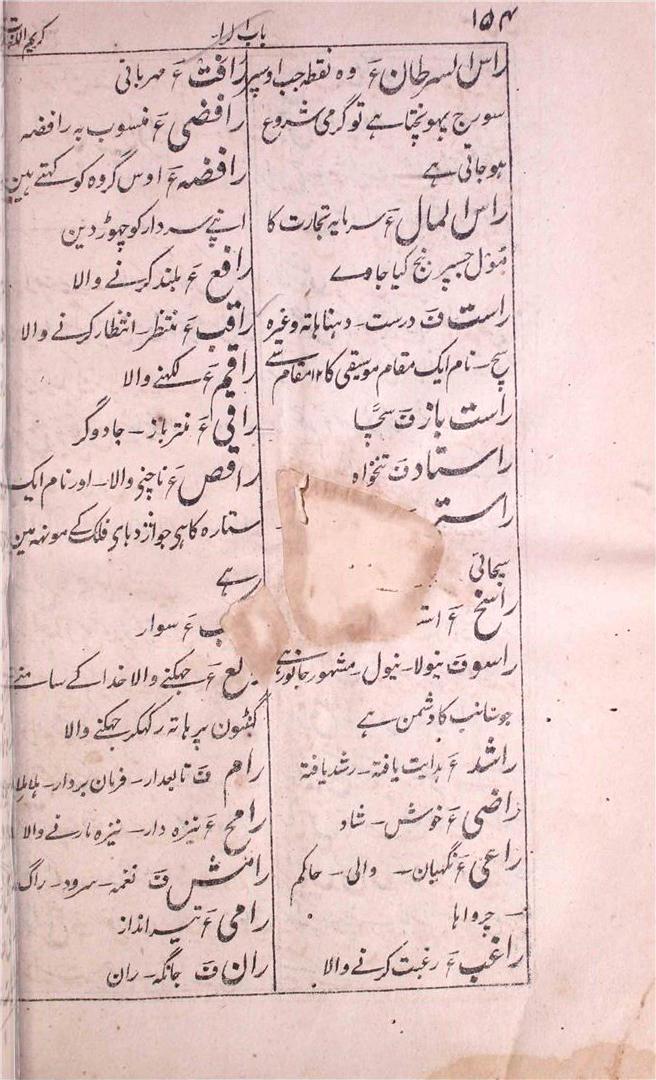 ۱۵۴
باب الرا
کریم اللغات
راس السرطان ع وہ نقطہ جب اوسپر
سورج پہونچتا ہے تو گرمی شروع
ہو جاتی ہے
راس المال ع سرمایہ تجارت کا
مول جسپر بنج کیا جاوے
راست ف درست۔ دہنا ہاتہ وغیرہ
سچ۔ نام ایک مقام موسیقی کا ۱۲ مقام سے
راست باز ف سچّا
راستاد ف تنخواہ
راستـ
سچائی
راسخ ع
راسو ف نیولا۔ نیول۔ مشہور جانور ہے
جو سانپ کا دشمن ہے
راشد ع ہدایت یافتہ۔ رشد یافتہ
راضی ع خوش۔ شاد
راعی ع نگہبان۔ والی۔ حاکم
۔ چرواہا
راغب ع رغبت کرنے والا
رافت ع مہربانی
رافضی ع منسوب بہ رافضہ
رافضہ ع اوس گروہ کو کہتے ہین
اپنے سردار کو چہوڑ دین
رافع ع بلند کرنے والا
راقب ع منتظر۔ انتظار کرنے والا
راقم ع لکہنے والا
راقی ع منتر باز۔ جادوگر
راقص ع ناچنی والا۔ اور نام ایک
ستارہ کا ہی جو اژدہای فلک کے مونہہ مین
رہے
ب ع سوار
کع ع جہکنے والا خدا کے سامنے
گہٹنون پر ہاتہ رکہکر جہکنے والا
رام ف تابعدار۔ فرمان بردار۔
رامح ع نیزہ دار۔ نیزہ مارنے والا
رامش ف نغمہ۔ سرود۔ راگ
رامی ع تیر انداز
ران ف جانگہ۔ ران